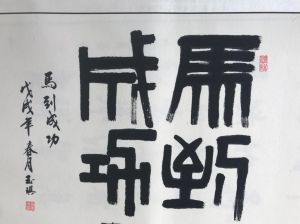 馬到
成功
馬到成功
戊戌年春月玉琪